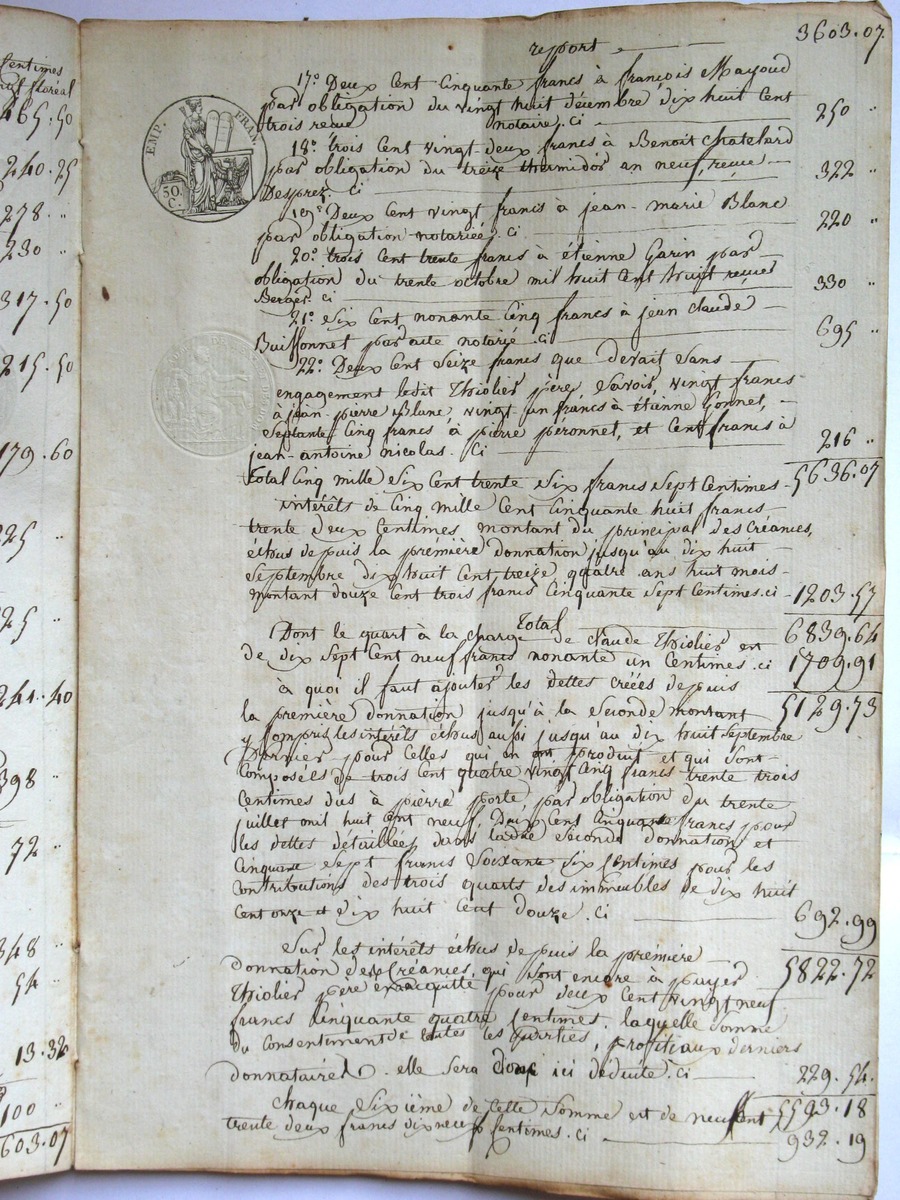 Centimes
465.50
240.25
278 "
230 "
317.50
215.50
179.60
225 "
25 "
241.40
398 "
72 "
348 "
54 "
13.32
100 "
603.07
report 3603.07
EMP. FRAN.
50 C.
17° Deux Cent Cinquante francs à françois Mayoud
par obligation du vingt huit décembre dix huit Cent
trois reçue notaire. ci 250 "
18° trois Cent vingt deux francs à Benoit Chatelard
par obligation du treize thermidor an neuf, reçue
Desprez. Ci 322 "
19° Deux Cent vingt francs à jean-marie Blanc
par obligation notariée. ci 220 "
20° trois cent trente francs à étienne Garin par
obligation du trente octobre mil huit Cent huit reçue
Berger. ci 330 "
21° Six Cent nonante Cinq francs à jean claude
Buissonnet par acte notarié. Ci 695 "
22° Deux Cent Seize francs que devait Sans
engagement ledit Thiolier père, Savoir, vingt francs
à jean-pierre Blanc, vingt un francs à étienne Gonnet,
Septante Cinq francs à pierre peronnet, et Cent francs à
jean-antoine nicolas. Ci 216 "
total Cinq mille Six Cent trente Six francs Sept Centimes 5636.07
intérêts de Cinq mille Cent Cinquante huit francs
trente deux Centimes, montant du principal des Créances,
échus depuis la première donnation jusqu'au dix huit
Septembre dix huit Cent treize quatre ans huit mois
montant douze Cent trois francs Cinquante Sept Centimes. ci 1203.57
Total 6839.64
Dont le quart à la charge de claude Thiolier est
de dix Sept Cent neuf francs nonante un Centimes. ci 1709.91
à quoi il faut ajouter les dettes créées depuis 5129.73
la première donnation jusqu'à la Seconde montant
y Compris les intérêts échus aussi jusqu'au dix huit Septembre
Dernier pour Celles qui en ont produit et qui Sont
Composées de trois Cent quatre vingt Cinq francs trente trois
Centimes dus à pierre porte, par obligation du trente
juillet mil huit Cent neuf, Deux Cent Cinquante francs pour
les dettes détaillées dans ladite Seconde donnation et
Cinquante Sept francs Soixante Six Centimes pour les
Contributions des trois quarts des immeubles de dix huit
Cent onze et dix huit Cent douze. Ci 692.99
5822.72
Sur les intérêts échus depuis la première
donnation des Créances, qui Sont encore à payer
Thiolier père en acquitté pour deux Cent vingt neuf
francs Cinquante quatre Centimes, laquelle Somme
du Consentement de toutes les parties, profite aux derniers
donnataires. elle Sera donc ici déduite. ci 229.54.
5593.18
Chaque Sixième de Celle Somme est de neuf Cent
trente deux francs dix neuf Centimes. Ci 932.19